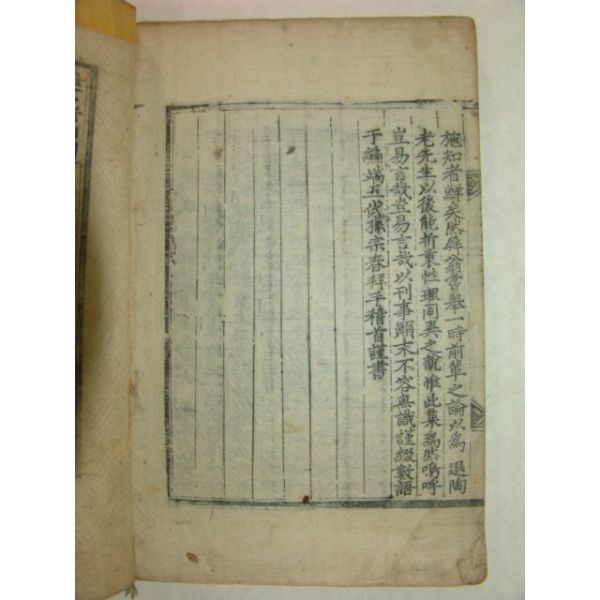 施知者鮮矣然屛翁嘗擧一時前輩之論以爲 退陶
老先生以後能折衷性理同異之說惟此集爲然嗚呼
豈易言哉豈易言哉以刊事顚末不容無識謹綴數語
于編端五代孫宗春拜手稽首謹書